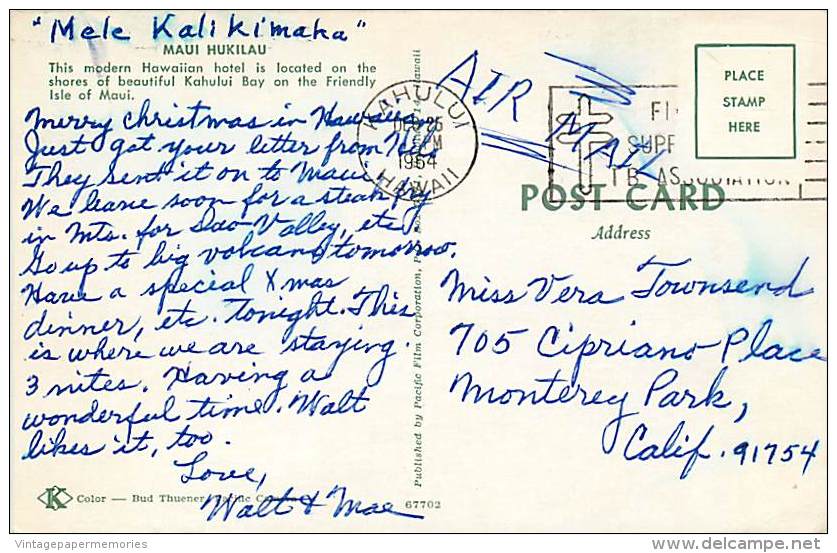 "Mele Kalikimaka"
MAUI HUKILAU
This modern Hawaiian hotel is located on the
shores of beautiful Kahului Bay on the Friendly
Isle of Maui.
Merry Christmas in Hawaiian
Just got your letter from
They sent it on to Maui.
We leave soon for a steak fry
in Mts. for Iao Valley, etc.
Go up to big volcano tomorrow.
Have a special Xmas
dinner, etc. tonight. This
is where we are staying
3 nites. Having a
wonderful time. Walt
likes it, too.
Love,
Walt & Mae
Color — Bud Thuener, Pacific
67702
Published by Pacific Film Corporation,
Hawaii
KAHULUI
DEC 25
PM
1964
HAWAII
AIR MAIL
TB ASSOCIATION
PLACE
STAMP
HERE
POST CARD
Address
Miss Vera Townsend
705 Cipriano Place
Monterey Park,
Calif. 91754
Vintagepapermemories
delcampe.net